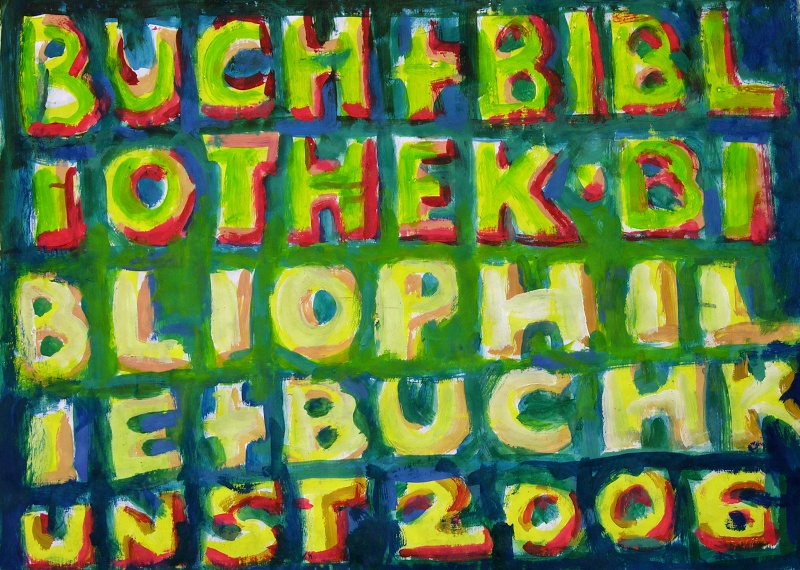 BUCH+BIBL
IOTHEK·BI
BLIOPHIL
IE+BUCHK
UNST2006